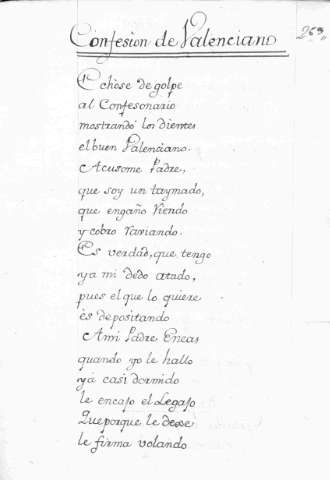 Confesion de Palenciano
269,,
Echose de golpe
al Confesonario
mostrando los dientes
el buen Palenciano.
Acusome Padre,
que soy un taymado,
que engaño Riendo
y cobro raviando.
Es verdad, que tengo
ya mi dedo atado,
pues el que lo quiere
es depositando
A mi Padre Eneas
quando yo le hallo
yá casi dormido
le encajo el Legajo
Que porque le dexe
le firma volando